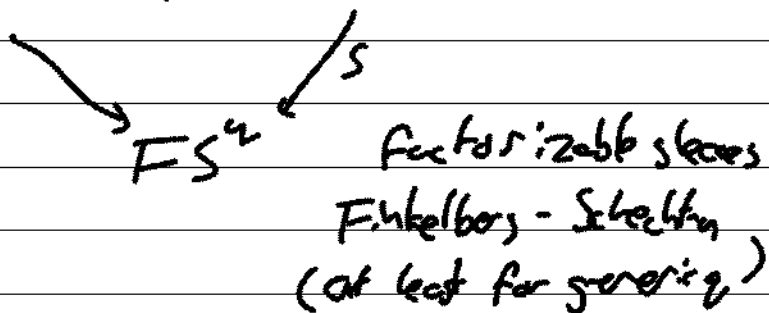 S
FS^q factorizable sheaves
Finkelberg - Schechtman
(at least for generic q)